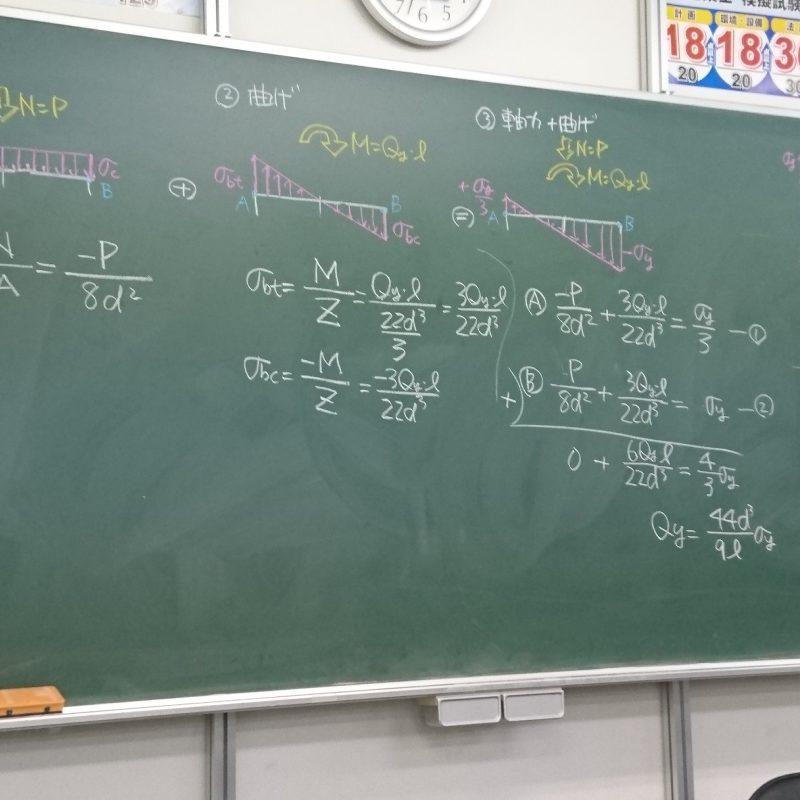 7 6 5
模擬試験
計画 環境・設備 法
18 18 30
20 20 30
N=P
σc
B
N/A = -P/8d²
② 曲げ
M=Qy·l
⊕ σbt
A B
σbc
σbt = M/Z = Qy·l/(22d³/3) = 3Qy·l/22d³
σbc = -M/Z = -3Qy·l/22d³
③ 軸力+曲げ
N=P
M=Qy·l
+σy/3
⊜ A B
-σy
Ⓐ -P/8d² + 3Qy·l/22d³ = σy/3 —①
+) Ⓑ P/8d² + 3Qy·l/22d³ = σy —②
0 + 6Qy·l/22d³ = 4/3 σy
Qy = 44d³/9l σy